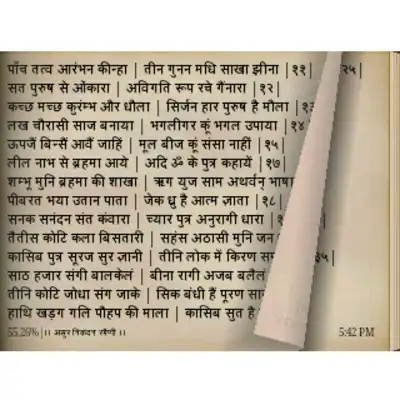 पाँच तत्व आरंभन कीन्हा | तीन गुनन मधि साखा झीना |११|
सत पुरुष से ओंकारा | अविगति रूप रचे गैंनारा |१२|
कच्छ मच्छ कुरंम्भ और धौला | सिर्जन हार पुरुष है मौला |१३
लख चौरासी साज बनाया | भगलीगर कूं भगल उपाया |१४
ऊपजैं बिन्सैं आवैं जाहिं | मूल बीज कूं संसा नाहीं |१५|
लील नाभ से ब्रहमा आये | अदि ॐ के पुत्र कहायें |१७|
शम्भू मुनि ब्रहमा की शाखा | ऋग युज साम अथर्वन् भाषा
पीबरत भया उतान पाता | जेक ध्रु है आत्म ज्ञाता |१८|
सनक सनंदन संत कंवारा | च्यार पुत्र अनुरागी धारा |
तैतीस कोटि कला बिसतारी | सहंस अठासी मुनि जन
कासिब पुत्र सूरज सुर ज्ञानी | तीनि लोक में किरण
साठ हजार संगी बालकेलं | बीना रागी अजब बलेलं
तीनि कोटि जोधा संग जाके | सिक बंधी हैं पूरण
हाथि खड़ग गलि पौहप की माला | कासिब सुत है
55.26% |। असुर निकंदन रमैणी ।। 5:42 PM